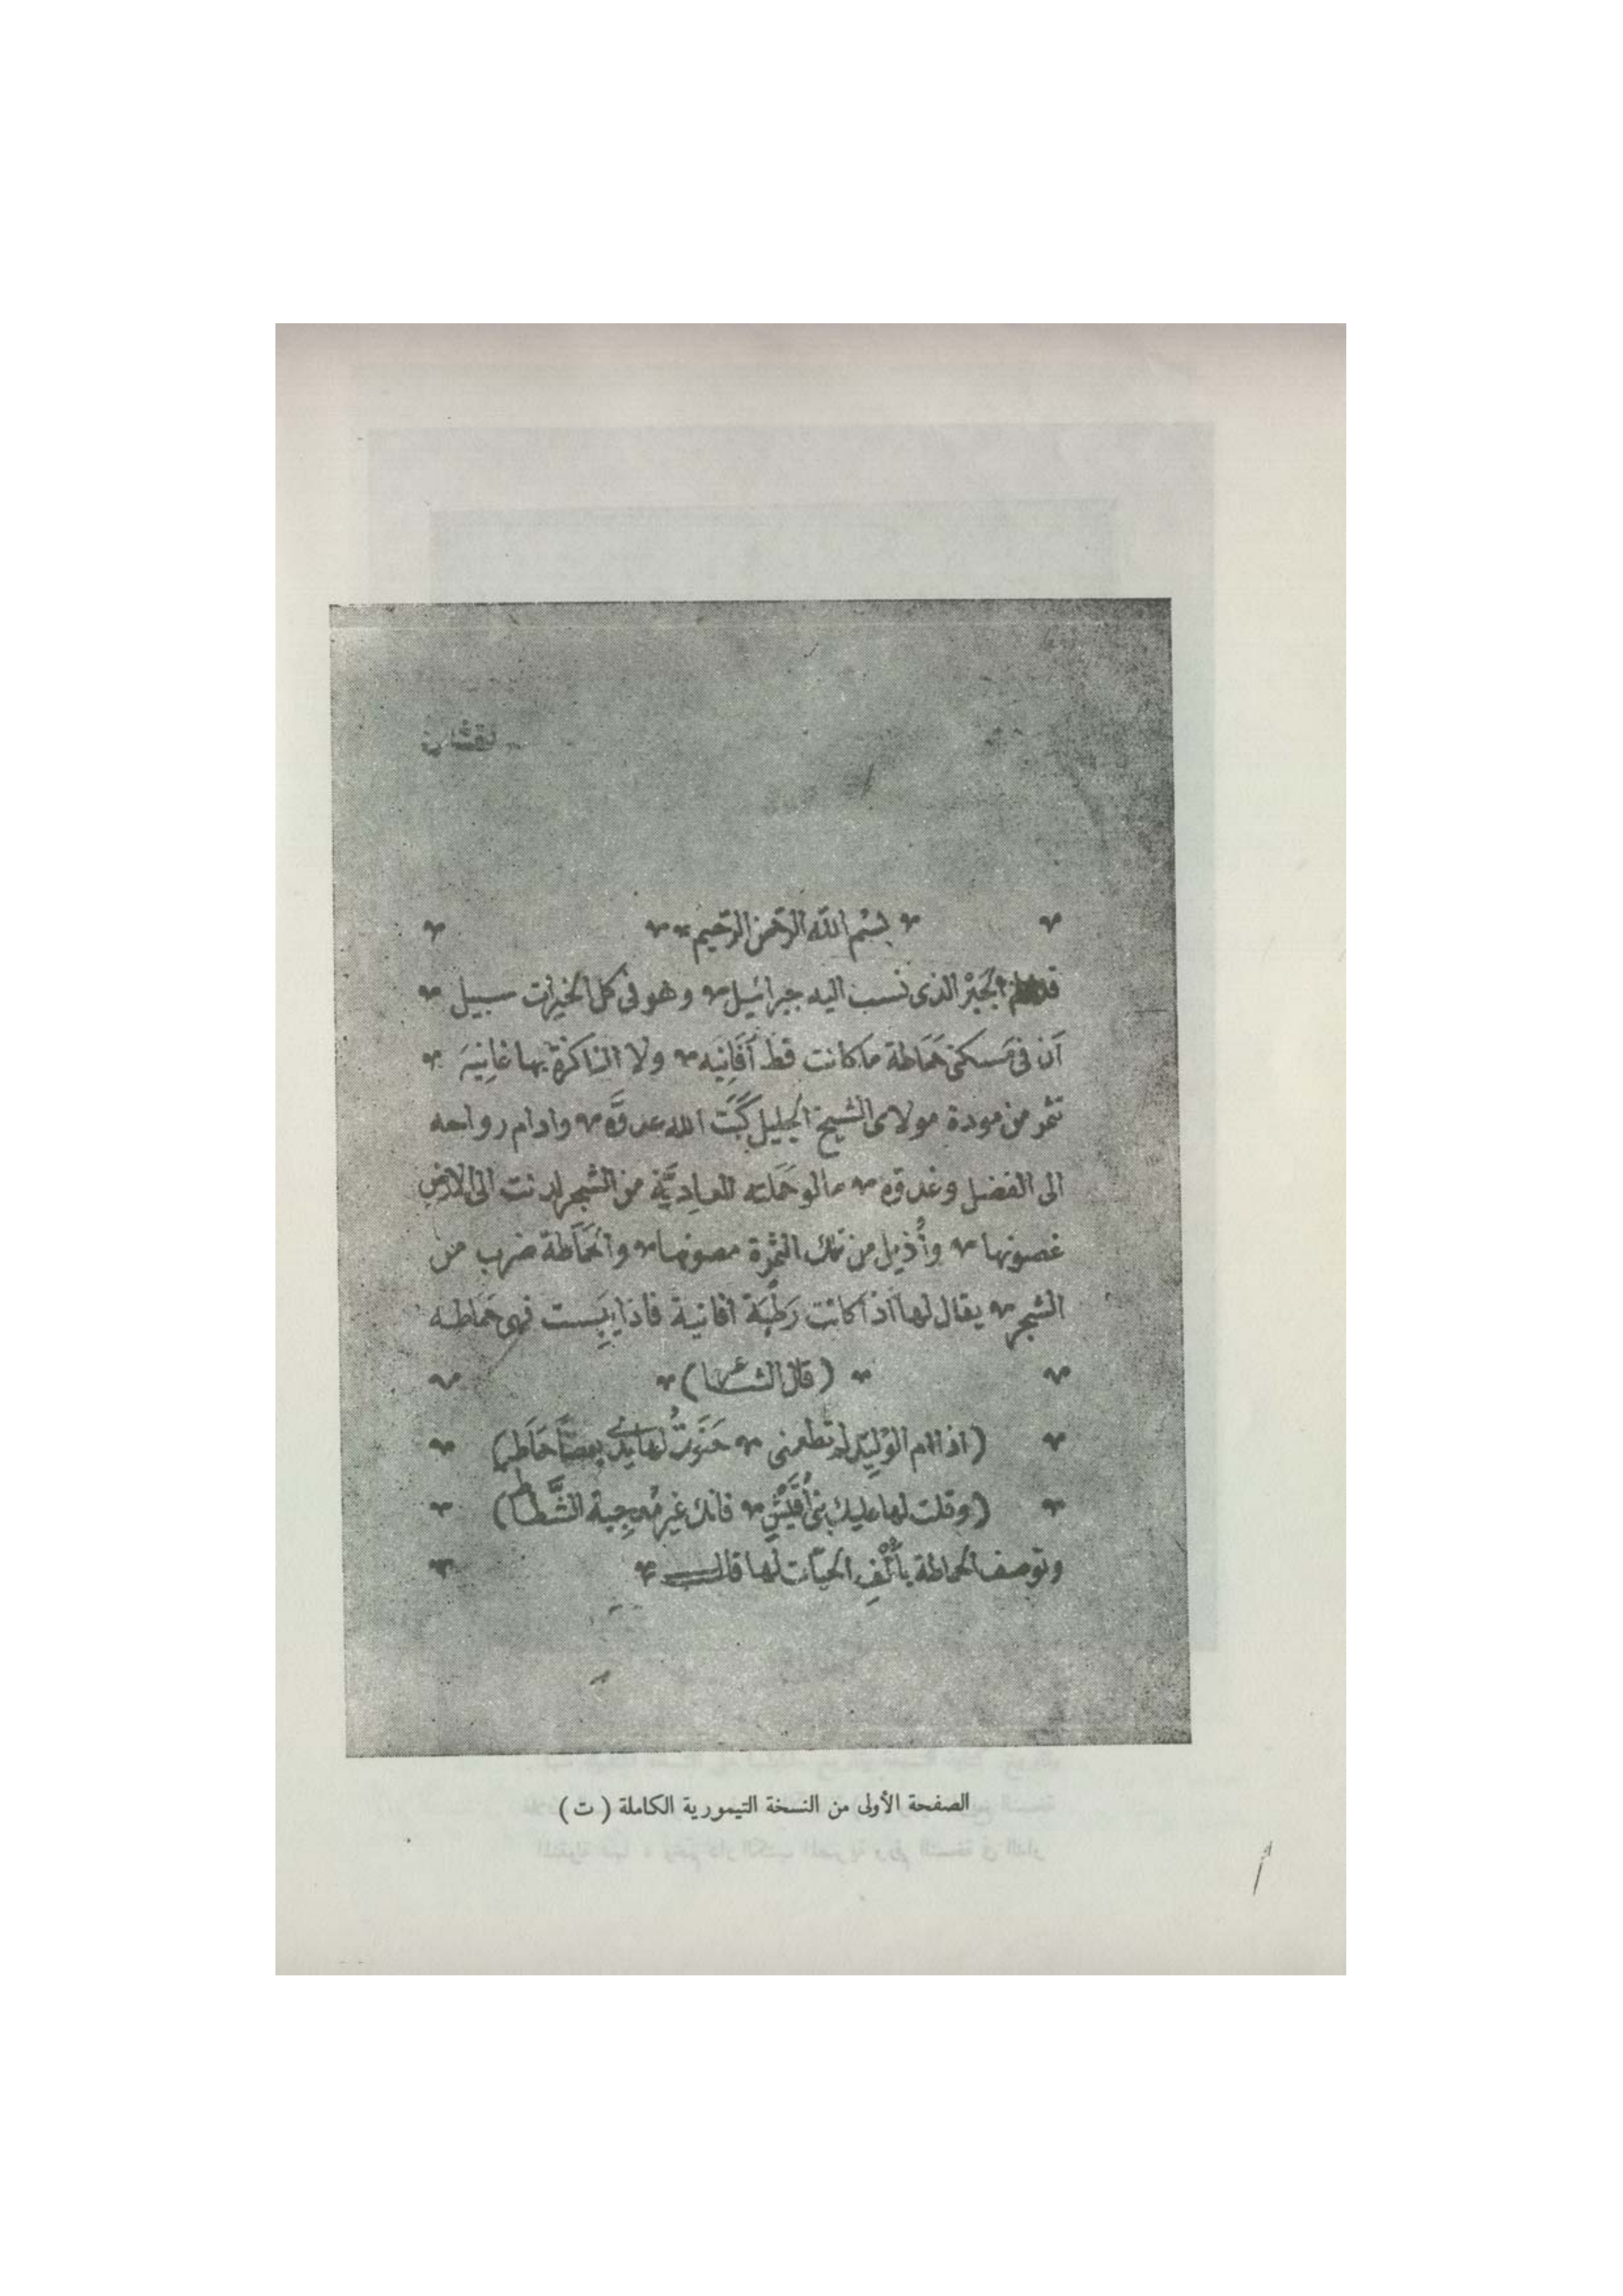 بسم الله الرَّحمن الرَّحيم
قد الجَبْر الذى نسب اليه جبرائيل وهو فى كل الخيرات سبيل
أن فى مَسكنى حَمَاطة ما كانت قط أَفَانِيَه ولا الناكزة بها غانِيَه
تثمر من مودة مولاى الشيخ الجليل كَبَتَ الله عدوَّه وادام رواحه
الى الفضل وغدوه ما لو حَمَلته العاديَّة من الشجر لدنت الى الارض
غصونها وأُذيل من تلك الثمرة مصونها والحَمَاطة ضرب من
الشجر يقال لها اذا كانت رَطْبَة افانية فاذا يَبِست فهى حَمَاطه
(قال الشاعر)
(اذا ام الوُليِّد لم تطعنى حَنَوتُ لها يدى بعصَا حَمَاطِ)
(وقلت لها عليك بنى أُقَيْشٍ فانك غير مُعجِبة الشَّطاط)
وتوصف الحماطة بأُلْفِ الحيّات لها قال
الصفحة الأولى من النسخة التيمورية الكاملة ( ت )